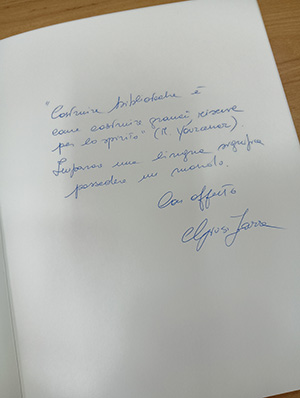 "Costruire biblioteche è
come costruire granai riserve
per lo spirito" (M. Yourcenar).
Imparare una lingua significa
possedere un mondo.
Con affetto